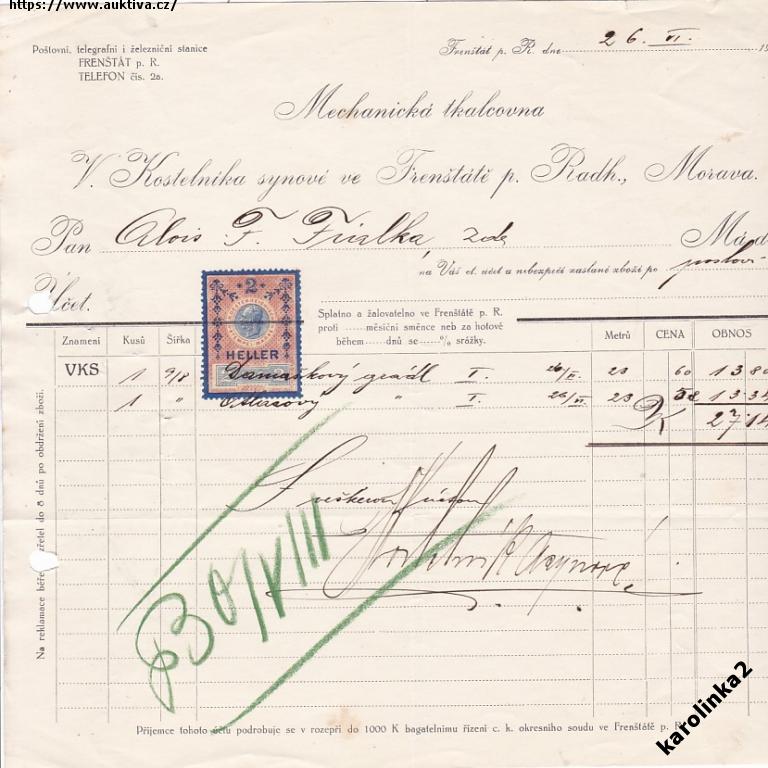 https://www.auktiva.cz/
Poštovní, telegrafní i železniční stanice
FRENŠTÁT p. R.
TELEFON čís. 2a.
Frenštát p. R. dne 26. VI. 19
Mechanická tkalcovna
V. Kostelníka synové ve Frenštátě p. Radh., Morava.
Pan Alois F. Fialka, zde Má d
na Váš ct. účet a nebezpečí zaslané zboží po
Účet.
Splatno a žalovatelno ve Frenštátě p. R.
proti měsíční směnce neb za hotové
během dnů se % srážky.
Znamení Kusů Šířka Metrů CENA OBNOS
2
HELLER
VKS 1 9/8 Damaskový gradl I. 26/VI. 23 60 13 80
1 " Atlasový " I. 26/VI. 23 58 13 34
K 27 14
30/VIII
Na reklamace béře zřetel do 8 dnů po obdržení zboží.
Příjemce tohoto účtu podrobuje se v rozepři do 1000 K bagatelnímu řízení c. k. okresního soudu ve Frenštátě p. R.
karolinka2